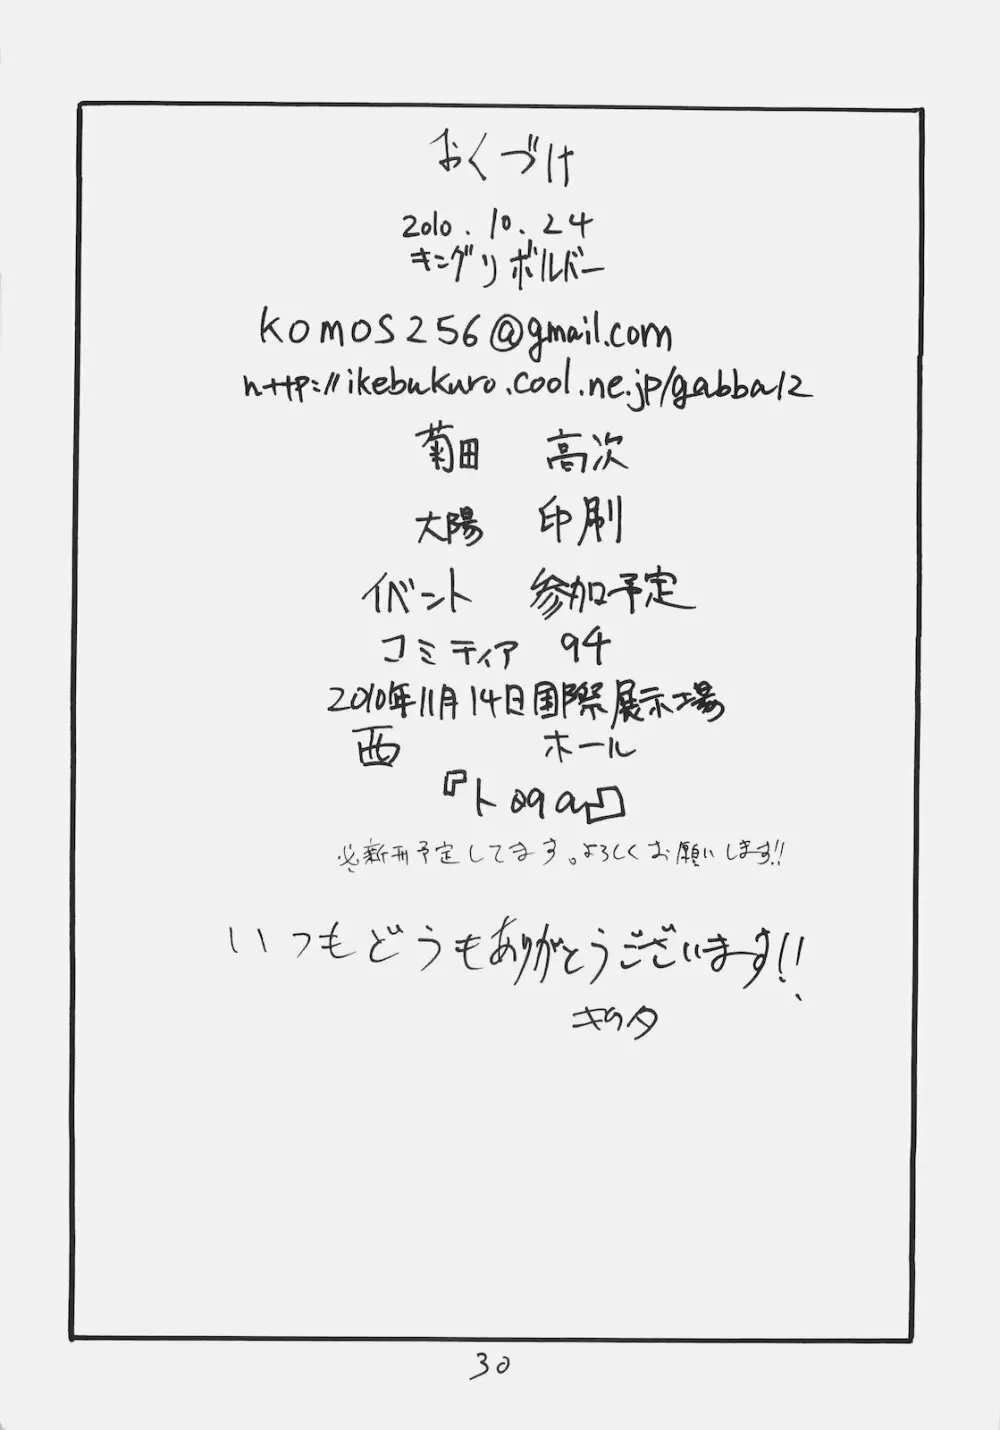 おくづけ
2010.10.24
キングリボルバー
komos256@gmail.com
http://ikebukuro.cool.ne.jp/gabba12
菊田 高次
大陽 印刷
イベント 参加予定
コミティア 94
2010年11月14日国際展示場
西 ホール
『ト09a』
※新刊予定してます。よろしくお願いします!!
いつもどうもありがとうございます!!
30